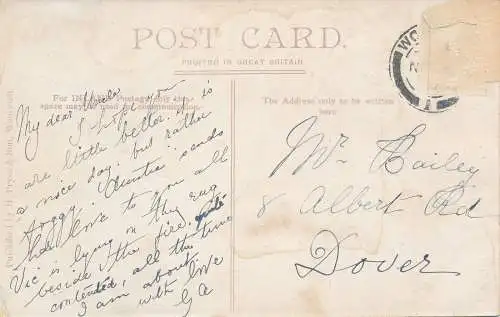 POST CARD.
PRINTED IN GREAT BRITAIN
For INLAND Postage only this
space may be used for communication.
The Address only to be written
here
My dear Uncle
I hope you
are little better. it is
a nice day. but rather
foggy. Auntie sends
her love to you all
Vic is lying on the rug
beside the fire. quite
contented, all the time
I am about.
with love
G A
Mr Hailey
8 Albert Rd
Dover
WO